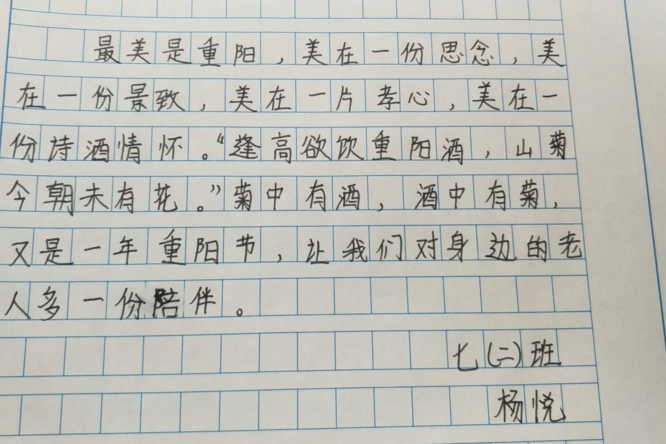 最美是重阳，美在一份思念，美
在一份景致，美在一片孝心，美在一
份诗酒情怀。“逢高欲饮重阳酒，山菊
今朝未有花。”菊中有酒，酒中有菊，
又是一年重阳节，让我们对身边的老
人多一份陪伴。
七(二)班
杨悦